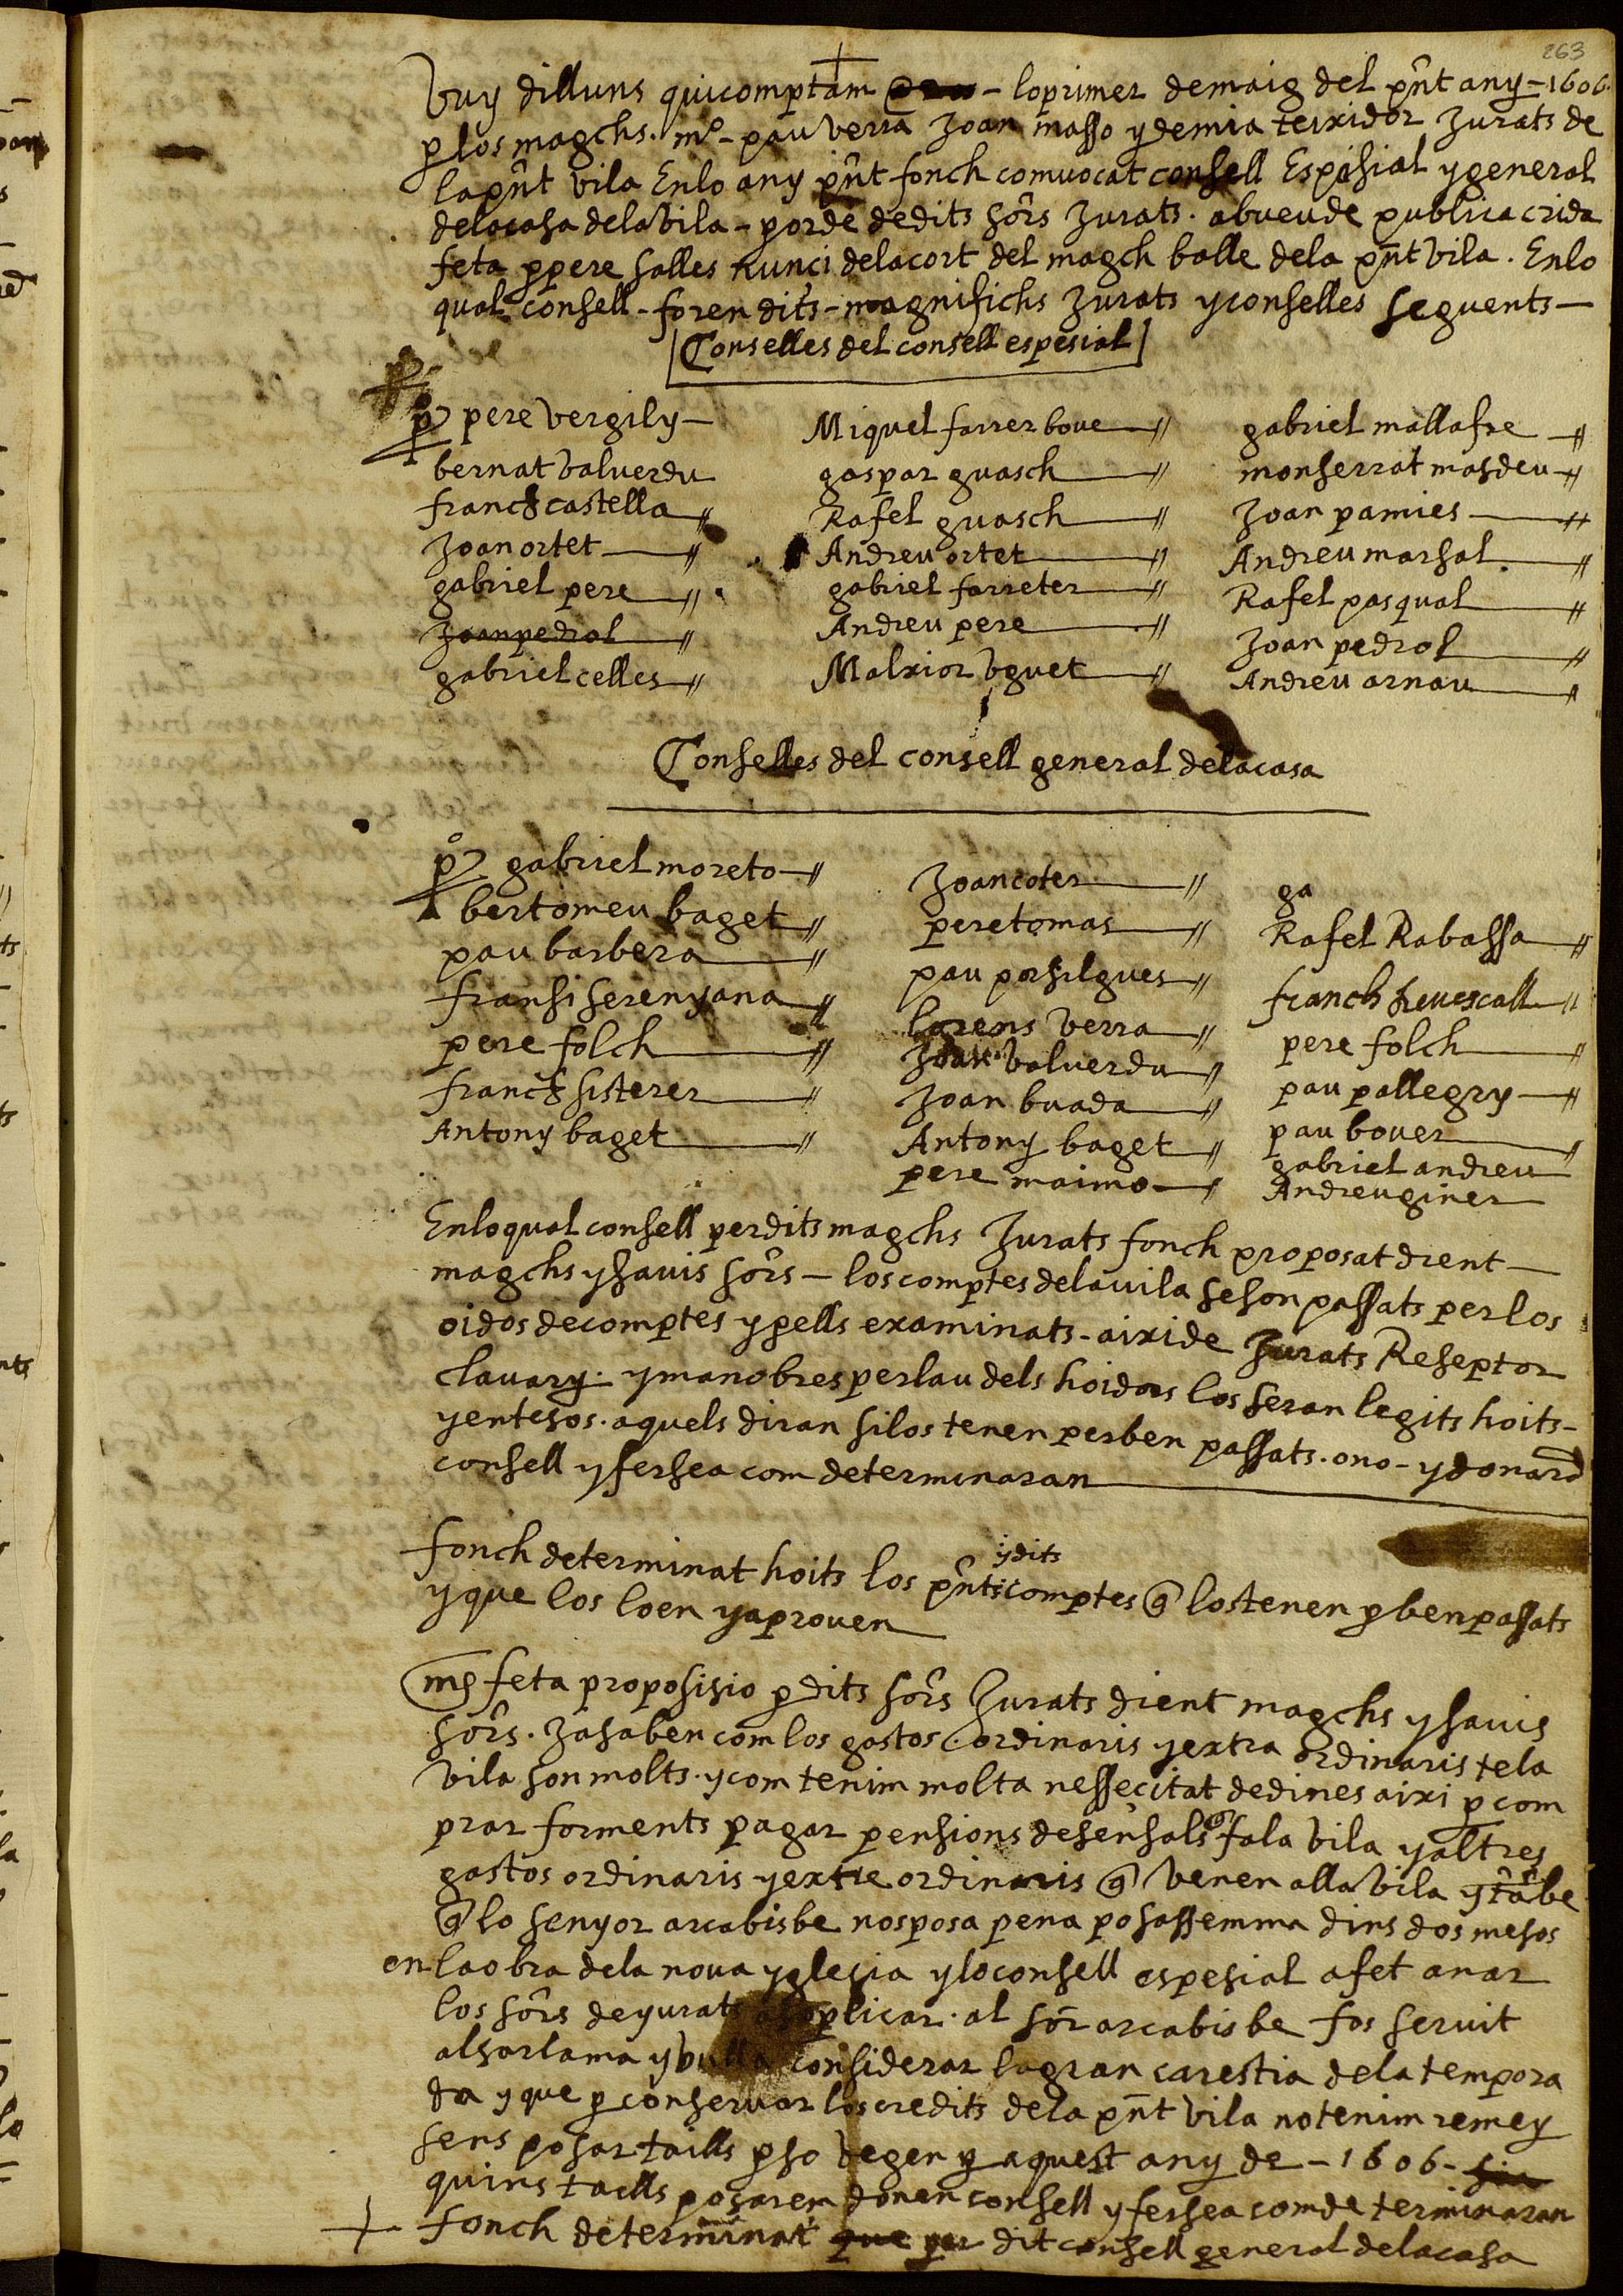 263
Vuy dilluns quicomptam - loprimer demaig del pñt any - 1606
p los magchs. mº - pau verra Joan masso y demia teixidor Jurats de
la pñt vila Enlo any pñt fonch comvocat consell Espesial y general
delacasa dela Vila - p orde dedits sõrs Jurats. abveu de publica crida
feta p pere salles Nunci delacort del magch balle dela pñt Vila. Enlo
qual consell - foren dits - magnifichs Jurats y conselles seguents
Conselles del consell espesial
pº pere vergily
bernat valuerdu
franch castella
Joan ortet
gabriel pere
Joan pedrol
gabriel celles
Miquel farrer boue
gaspar guasch
Rafel guasch
Andreu ortet
gabriel farreter
Andreu pere
Malxior vguet
gabriel mallafre
monserrat masdeu
Joan pamies
Andreu marsal
Rafel pasqual
Joan pedrol
Andreu arnau
Conselles del consell general delacasa
pº gabriel moreto
bertomeu baget
pau barbera
fransi serenyana
pere folch
franch sisterer
Antony baget
Joan coter
pere tomas
pau porsilgues
lorens verra
Joan valuerdu
Joan buada
Antony baget
pere maimo
ga
Rafel Rabassa
franch seuescall
pere folch
pau pallegry
pau bouer
gabriel andreu
Andreu giner
Enloqual consell perdits magchs Jurats fonch proposat dient
magchs y sauis sõrs - los comptes delauila seson passats per los
oidos de comptes y p ells examinats - aixi de Jurats Reseptor
clauary. y manobres perlau dels hoidors los seran legits hoits -
y entesos. aquels diran silos tenen perben passats. ono - y donara
consell y fersea com determinaran
fonch determinat hoits los pñts ydits comptes q̃ los tenen p ben passats
y que los loen y aprouen
mes feta proposisio p dits sõrs Jurats dient magchs y sauis
sõrs. Ja saben com los gastos ordinaris y extra ordinaris te la
vila son molts. y com tenim molta nessecitat de dines aixi p com
prar forments pagar pensions desensals q̃ fa la vila y altres
gastos ordinaris y extre ordinaris q̃ venen alla vila y tãbe
q̃ lo senyor arcabisbe nos posa pena posassemma dins dos mesos
en la obra dela noua yglesia y lo consell espesial a fet anar
los sõrs de yurats a soplicar. al sõr arcabisbe fos seruit
alsarlama y vulla considerar la gran carestia dela tempora
da y que p conseruar los credits dela pñt vila no tenim remey
sens posar taills p so vegen p aquest any de - 1606 - sia
quins taells posarem donen consell y fersea com determinaran
fonch determinat que per dit consell general delacasa